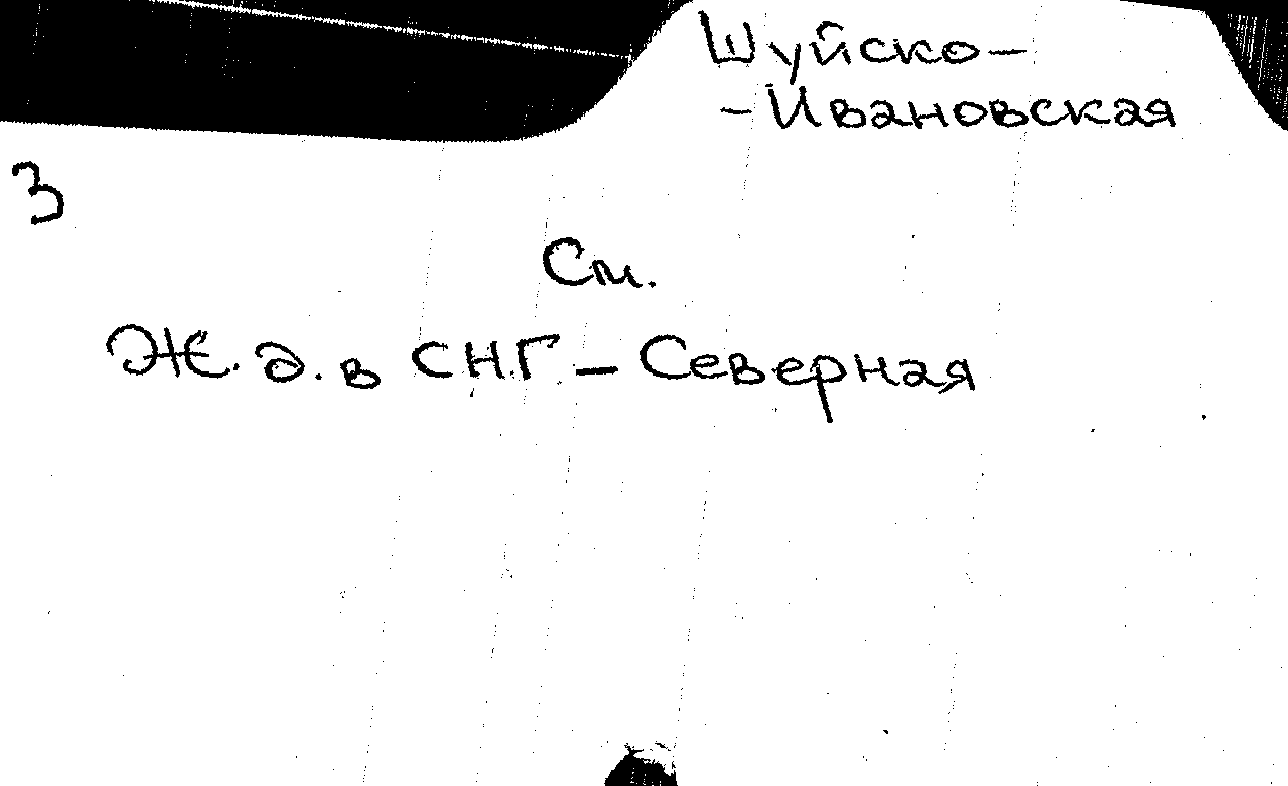 Шуйско-
-Ивановская
3
См.
Ж.д. в СНГ - Северная